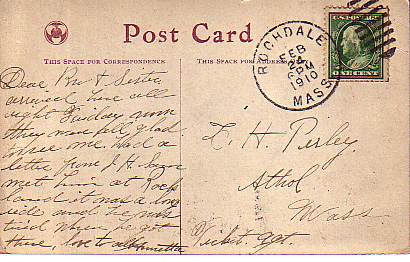 Post Card
THIS SPACE FOR CORRESPONDENCE
THIS SPACE FOR ADDRESS ONLY
ROCHDALE
FEB
6 PM
1910
MASS.
U.S. POSTAGE
ONE CENT
Dear Bro & Sister
arrived here all
right Friday
they were all glad
to see me had a
letter from J. H.
met him at Rock
land it was a long
ride and he was
tired when he got
there, love to all
L. H. Perley,
Athol
Mass
Ticket Agt.